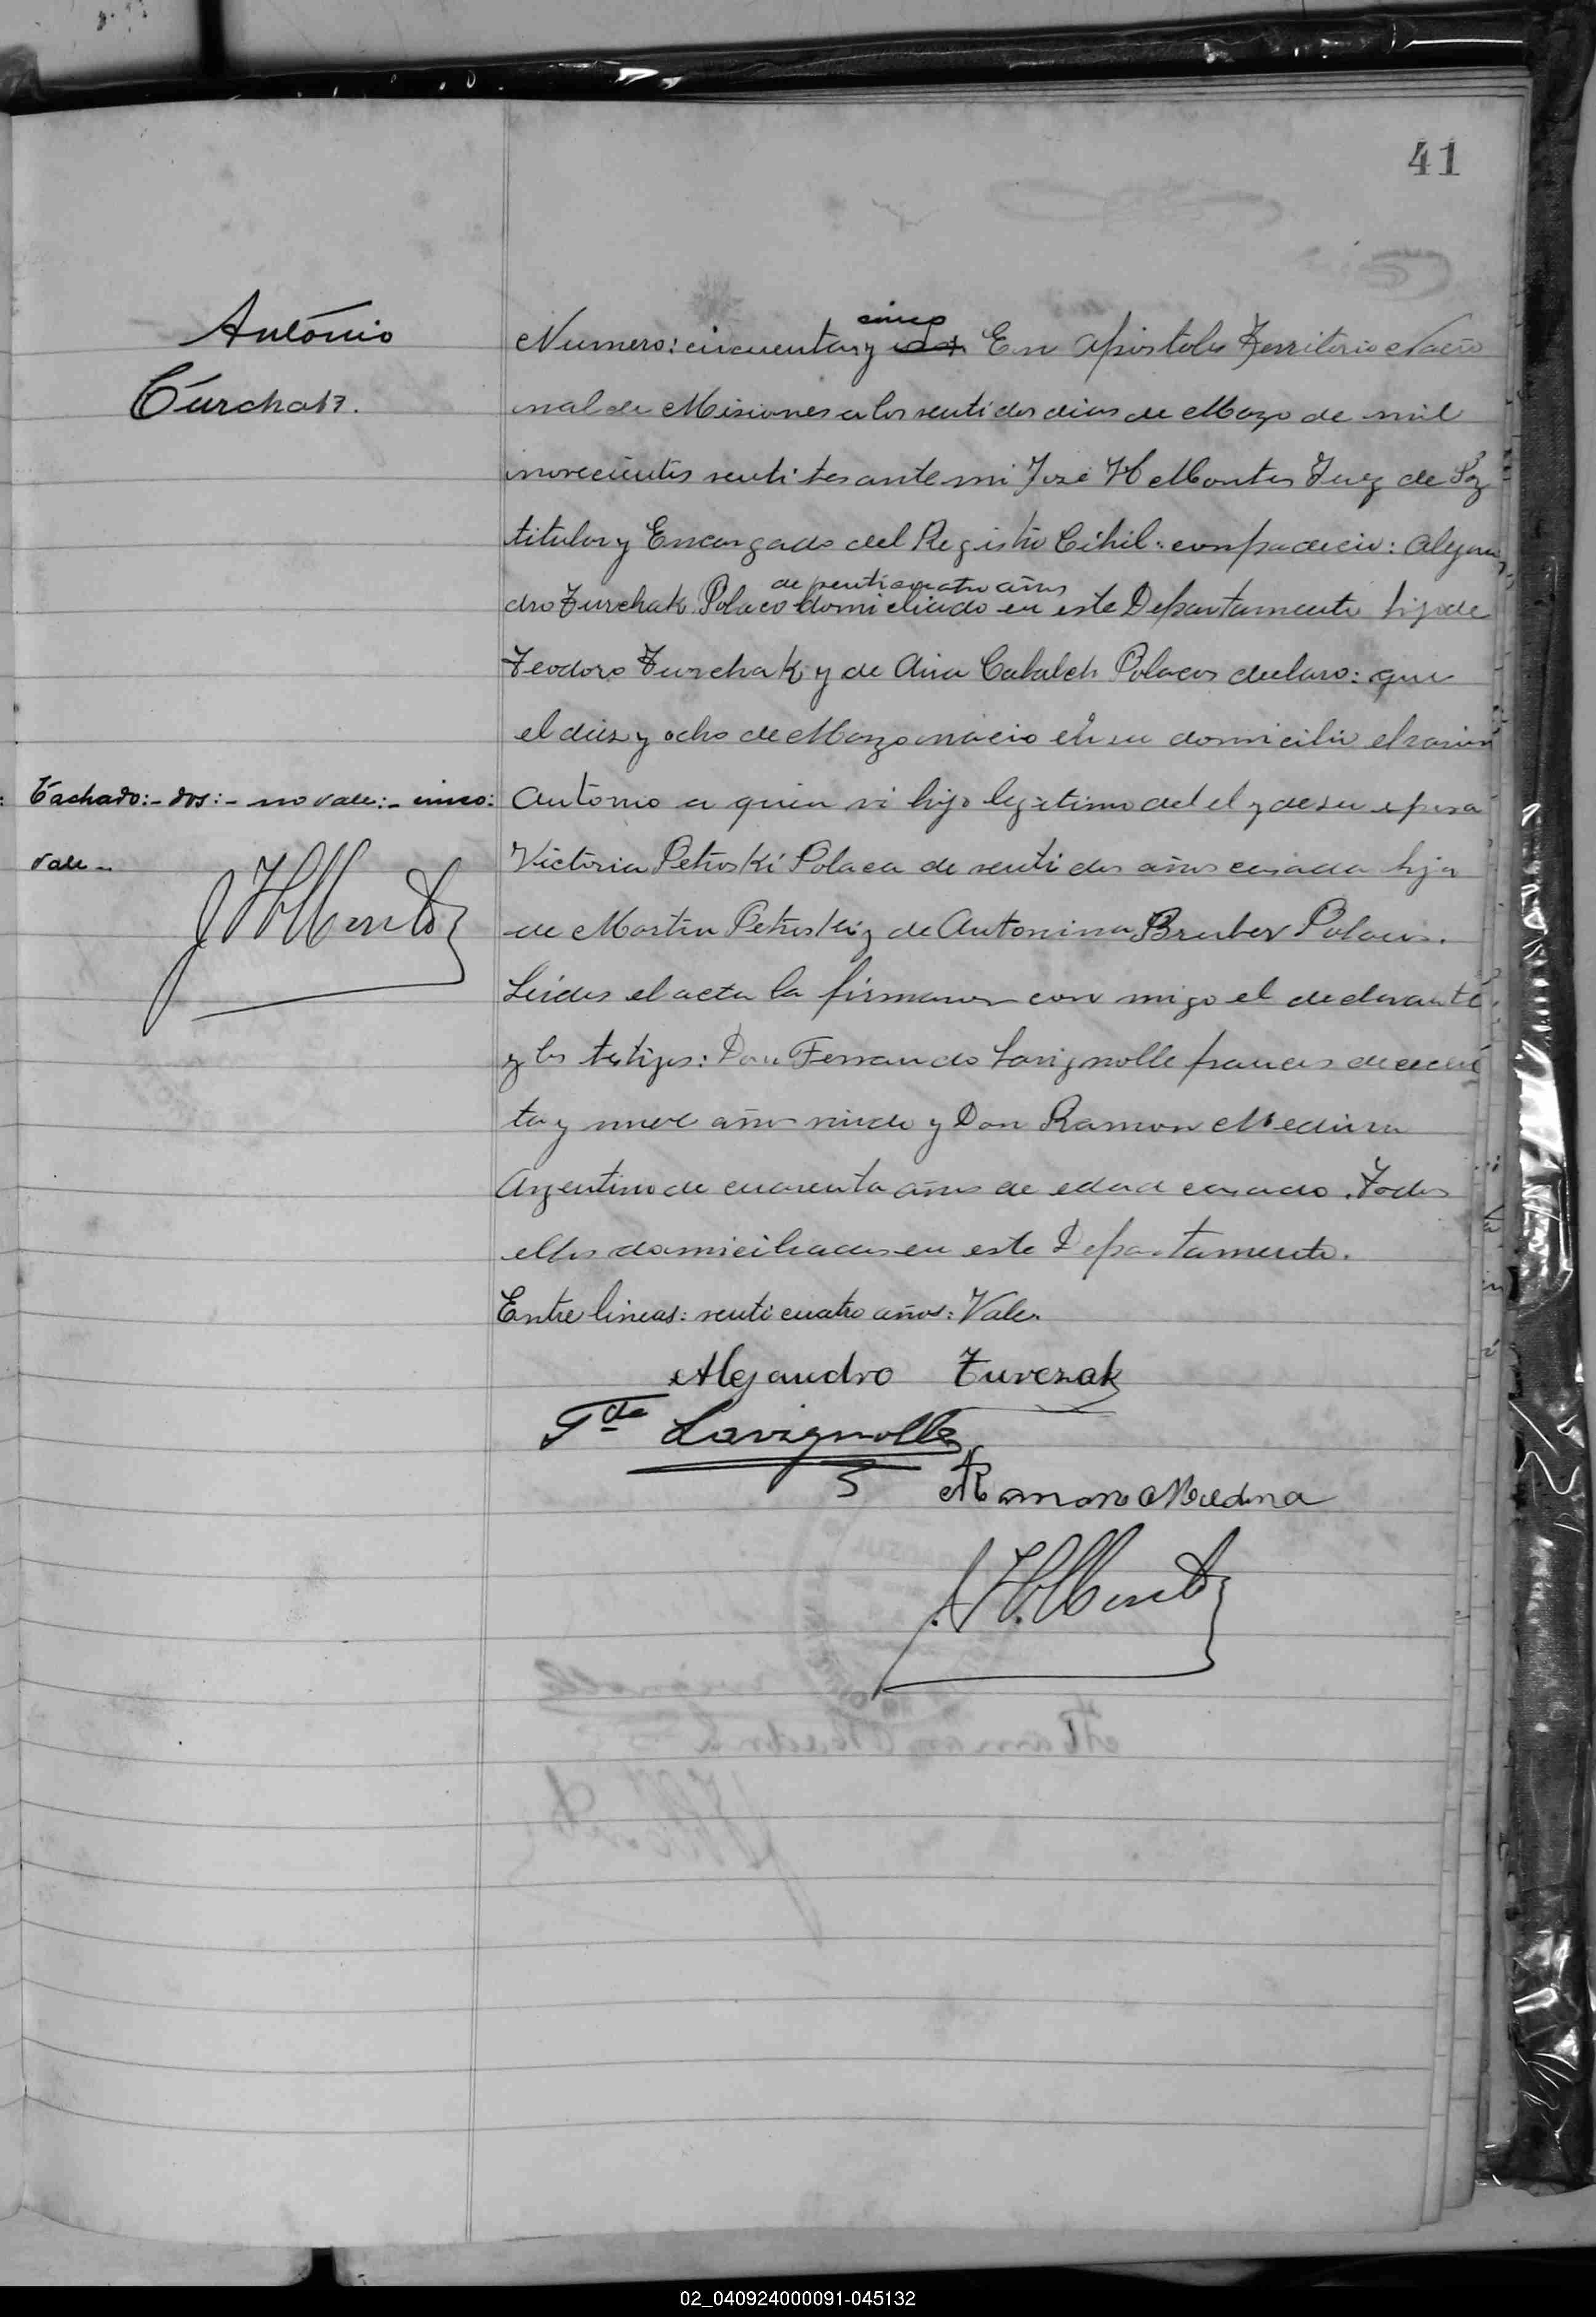 41
Antonio
Turchak.
cinco
Numero: cincuenta y dos En Apostoles Territorio Nacio
nal de Misiones a los venti dos dias de Marzo de mil
novecientos venti tres ante mi José H Montes Juez de Paz
titular y Encargado del Registro Cihil: conpadecio: Alejan
de venticuatro años
dro Turchak Polaco domiciliado en este Departamento hijo de
Teodoro Turchak y de Ana Cabalch Polacos declaro: que
el diez y ocho de Marzo nacio en su domicilio el varon
Tachado:- dos:- no vale:- cinco:
Antonio a quien vi hijo legitimo del el y de su esposa
vale -
Victoria Petroski Polaca de venti dos años casada hija
J H Montes
de Martin Petroski y de Antonina Bruber Polacos.
Leidos el acta la firmaron con migo el declarante
y los testigos: Don Fernando Lavignolle frances de
ta y nueve años viudo y Don Ramon Medina
Argentino de cuarenta años de edad casado. Todos
ellos domiciliados en este Departamento.
Entre lineas: venti cuatro años: Vale.
Alejandro Turczak
Lavignolle
Ramon Medina
J. H. Montes
02_040924000091-045132